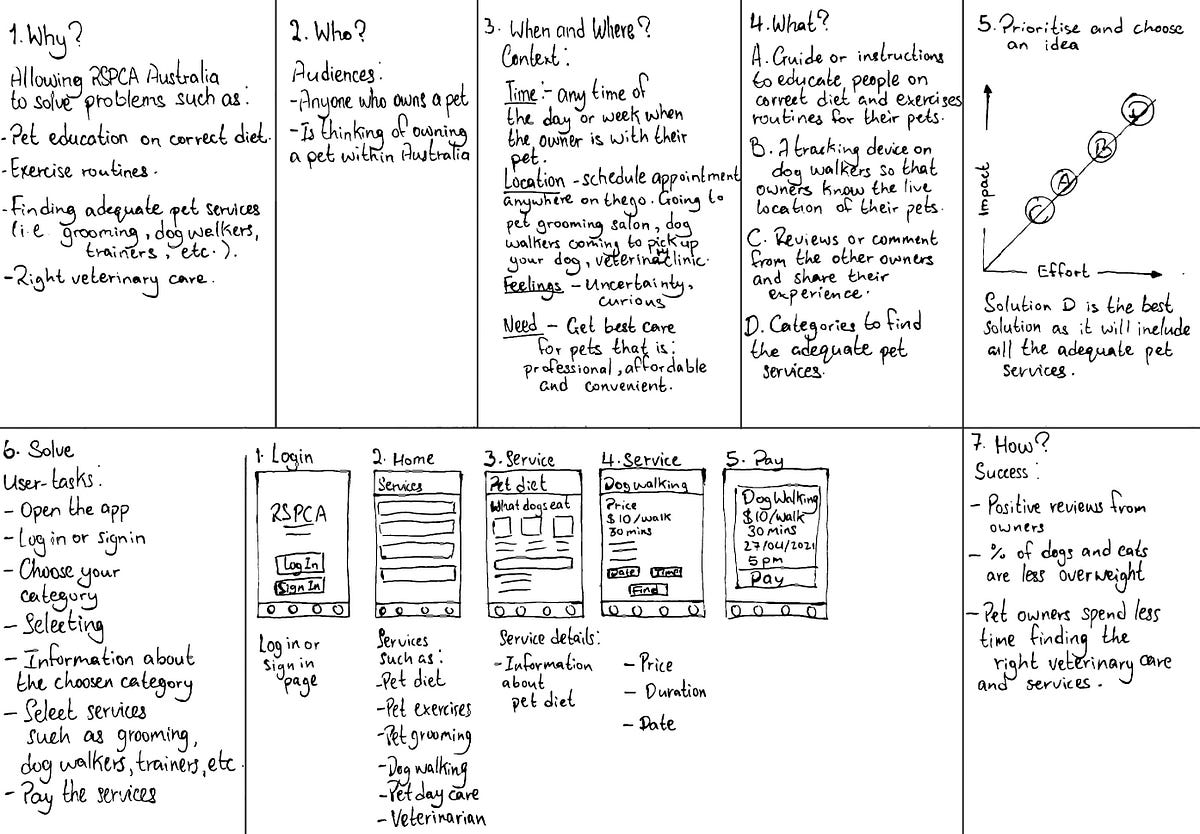 1. Why?
Allowing RSPCA Australia
to solve problems such as:
- Pet education on correct diet.
- Exercise routines.
- Finding adequate pet services
(i.e grooming, dog walkers,
trainers, etc.).
- Right veterinary care.
2. Who?
Audiences:
- Anyone who owns a pet
- Is thinking of owning
a pet within Australia
3. When and Where?
Context:
Time:- any time of
the day or week when
the owner is with their
pet.
Location - schedule appointment
anywhere on the go. Going to
pet grooming salon, dog
walkers coming to pick up
your dog, veterinary clinic.
Feelings - Uncertainty,
curious
Need - Get best care
for pets that is:
professional, affordable
and convenient.
4. What?
A. Guide or instructions
to educate people on
correct diet and exercises
routines for their pets.
B. A tracking device on
dog walkers so that
owners know the live
location of their pets.
C. Reviews or comment
from the other owners
and share their
experience.
D. Categories to find
the adequate pet
services.
5. Prioritise and choose
an idea
Impact
D
B
A
C
Effort
Solution D is the best
solution as it will include
all the adequate pet
services.
6. Solve
User-tasks:
- Open the app
- Log in or sign in
- Choose your
category
- Selecting
- Information about
the choosen category
- Select services
such as grooming,
dog walkers, trainers, etc.
- Pay the services
1. Login
RSPCA
Log In
Sign In
Log in or
sign in
page
2. Home
Services
Services
such as:
- Pet diet
- Pet exercises
- Pet grooming
- Dog walking
- Pet day care
- Veterinarian
3. Service
Pet diet
What dogs eat
Service details:
- Information
about
pet diet
4. Service
Dog walking
Price
$10/walk
30 mins
Date Time
Find
- Price
- Duration
- Date
5. Pay
Dog Walking
$10/walk
30 mins
27/04/2021
5 pm
Pay
7. How?
Success:
- Positive reviews from
owners
- % of dogs and cats
are less overweight
- Pet owners spend less
time finding the
right veterinary care
and services.